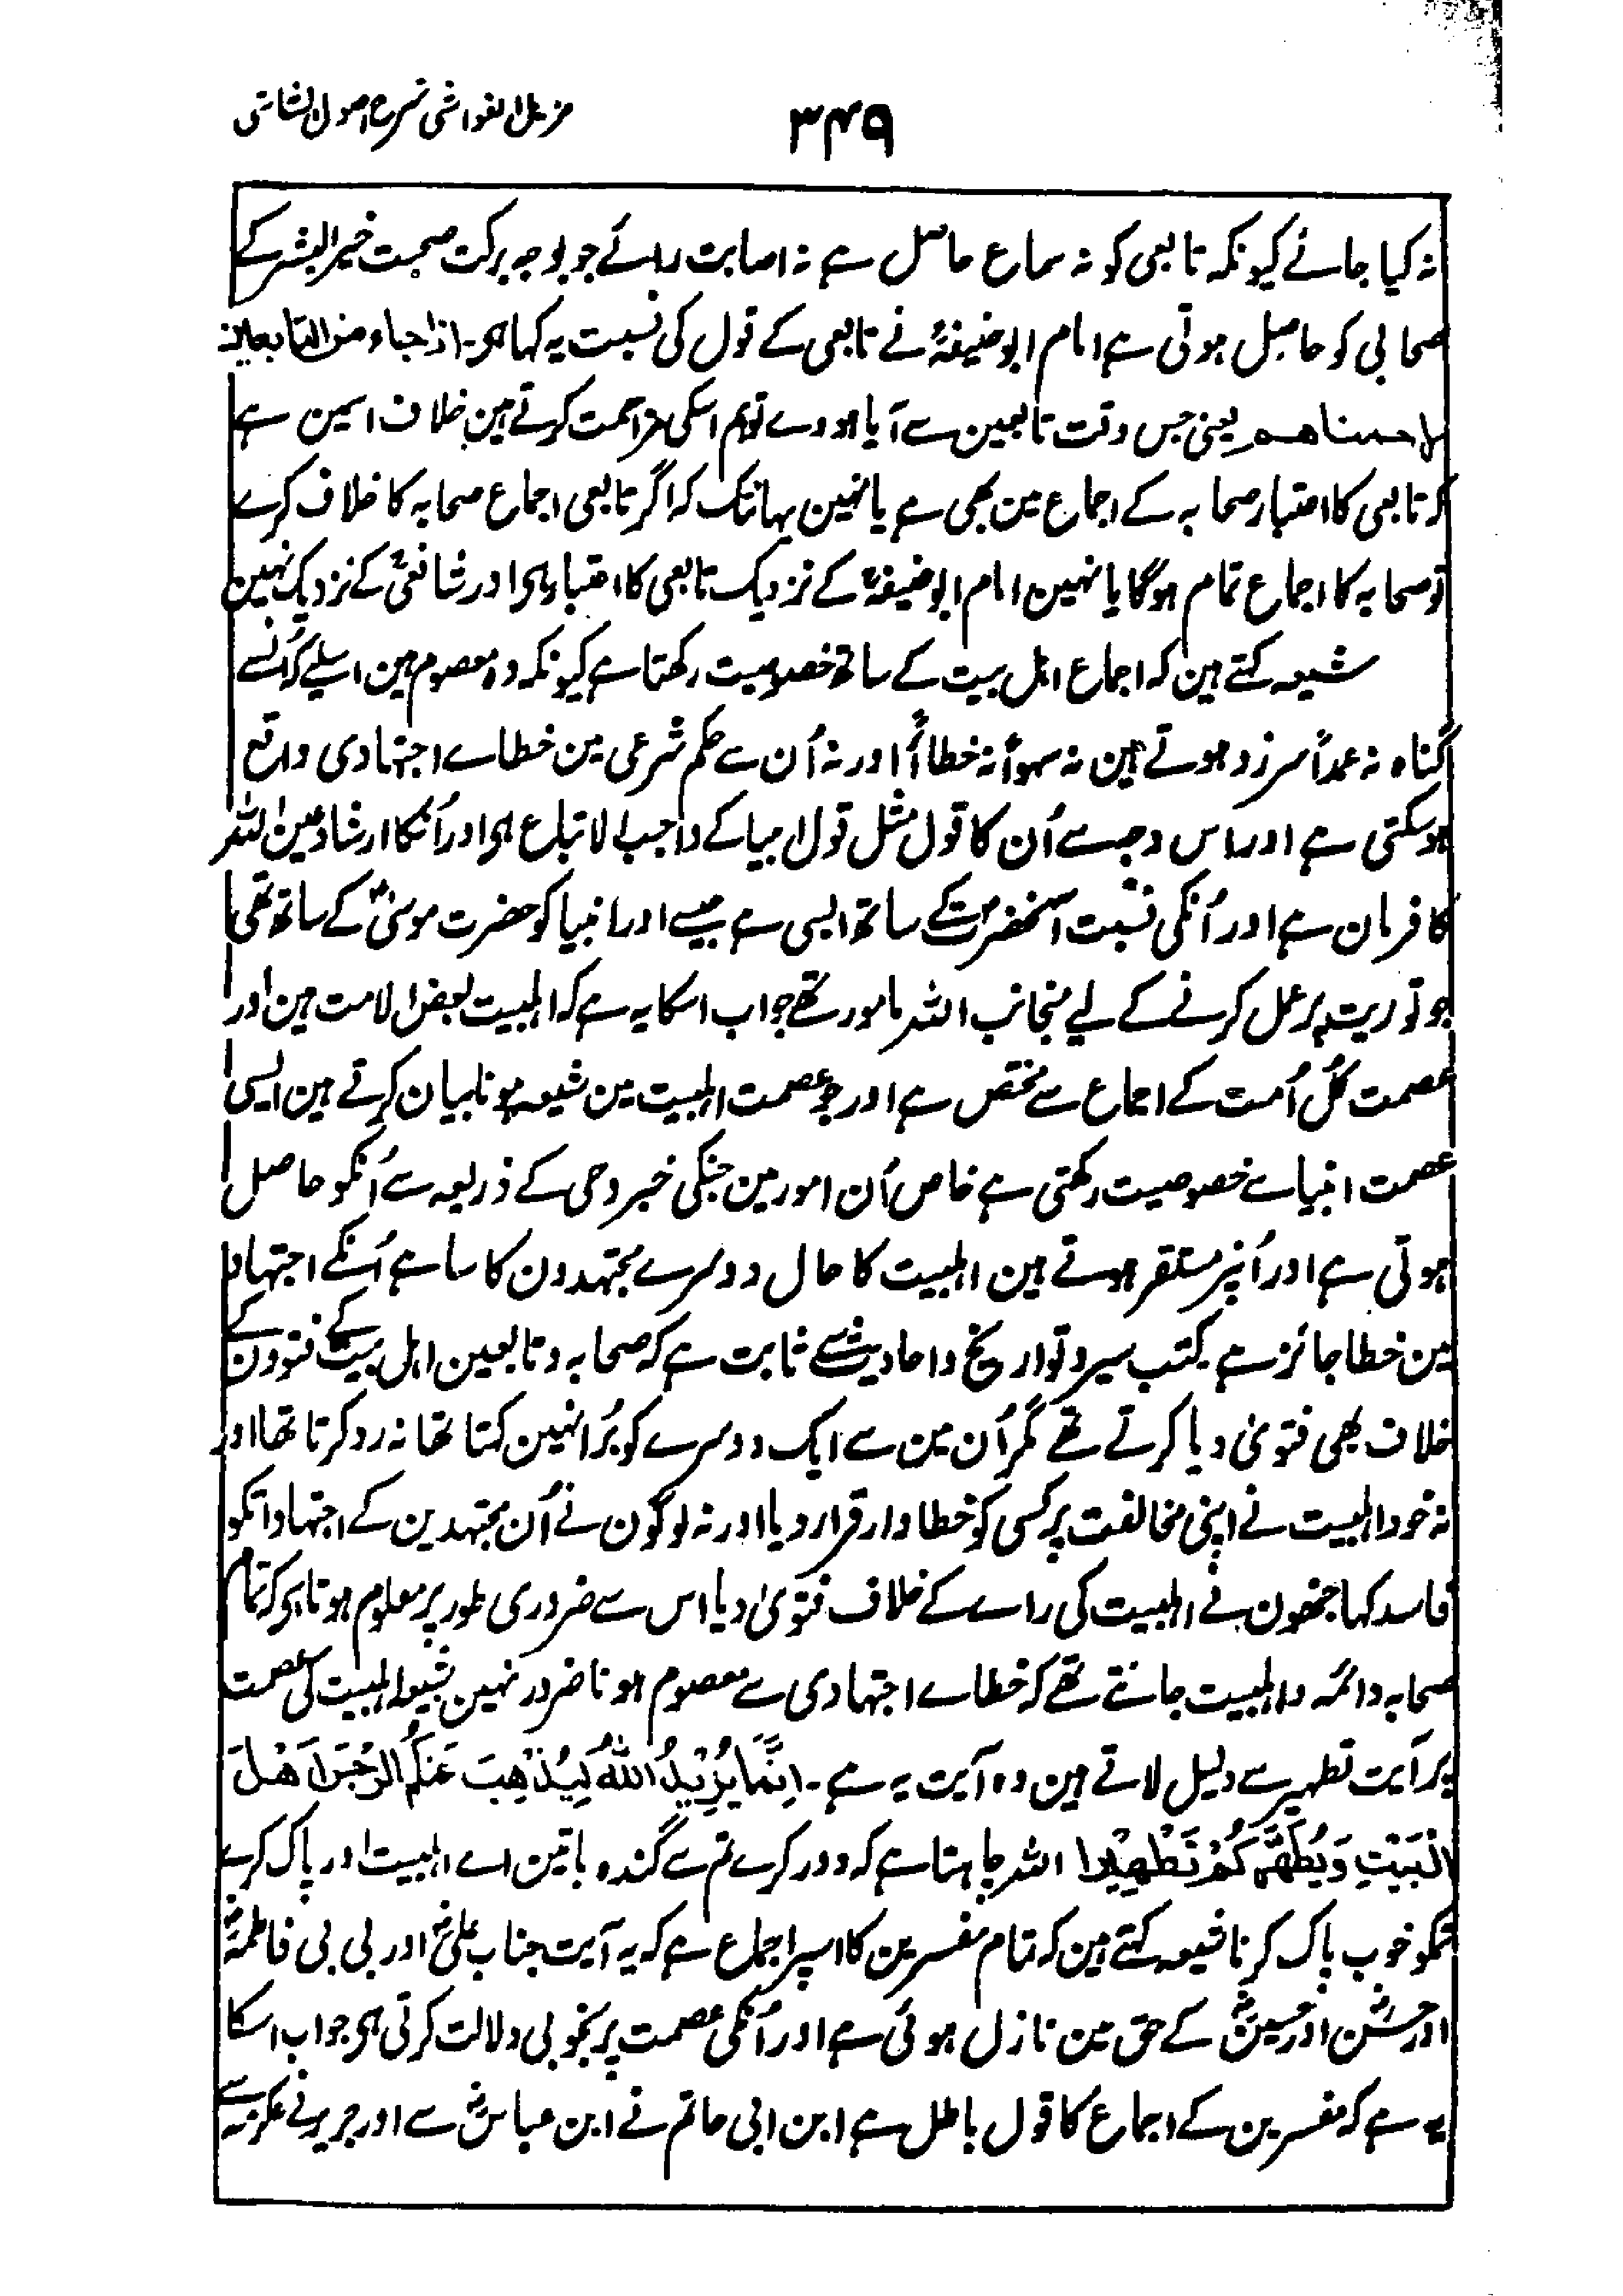 مزیل الغواشی شرح اصول الشاشی
۳۴۹
نہ کیا جائے کیونکہ تابعی کو نہ سماع حاصل ہے نہ اصابت رائے جو بوجہ برکت صحبت خیر البشر کے
صحابی کو حاصل ہوتی ہے امام ابوحنیفہؒ نے تابعی کے قول کی نسبت یہ کہا ہی۔ اذا جاء من التابعین
زاحمناهم یعنی جس وقت تابعین سے آیا ہووے تو ہم اسکی مزاحمت کرتے ہین خلاف اسمین ہے
کہ تابعی کا اعتبار صحابہ کے اجماع مین بھی ہے یا نہین یہانتک کہ اگر تابعی اجماع صحابہ کا خلاف کرے
تو صحابہ کا اجماع تمام ہوگا یا نہین امام ابوحنیفہؒ کے نزدیک تابعی کا اعتبار ہی اور شافعیؒ کے نزدیک نہین
شیعہ کہتے ہین کہ اجماع اہل بیت کے ساتھ خصوصیت رکھتا ہے کیونکہ وہ معصوم ہین اسلیے کہ اُنسے
گناہ نہ عمداً سرزد ہوتے ہین نہ سہواً نہ خطاءً اور نہ اُن سے حکم شرعی مین خطاے اجتہادی واقع
ہوسکتی ہے اور اس وجہ سے اُن کا قول مثل قول انبیا کے واجب الاتباع ہی اور اُنکا ارشاد عین اللہ
کا فرمان ہے اور اُنکی نسبت آنحضرتؐ کے ساتھ ایسی ہے جیسے اور انبیا کو حضرت موسیٰؑ کے ساتھ تھی
جو توریت پر عمل کرنے کے لیے منجانب اللہ مامور تھے جواب اسکا یہ ہے کہ اہلبیت بعض الامت ہین اور
عصمت کل اُمت کے اجماع سے مختص ہے اور جو عصمت اہلبیت مین شیعہ ہونا بیان کرتے ہین ایسی
عصمت انبیا سے خصوصیت رکھتی ہے خاص اُن امور مین جنکی خبر وحی کے ذریعہ سے اُنکو حاصل
ہوتی ہے اور اُنپر مستقر ہوتے ہین اہلبیت کا حال دوسرے مجتہدون کا سا ہے اُنکے اجتہاد
مین خطا جائز ہے کتب سیر و تواریخ و احادیث سے ثابت ہے کہ صحابہ و تابعین اہل بیت کے فتوون کے
خلاف بھی فتویٰ دیا کرتے تھے مگر اُن مین سے ایک دوسرے کو بُرا نہین کہتا تھا نہ رد کرتا تھا اور
نہ خود اہلبیت نے اپنی مخالفت پر کسی کو خطاوار قرار دیا اور نہ لوگون نے اُن مجتہدین کے اجتہاد کو
فاسد کہا جنھون نے اہلبیت کی راے کے خلاف فتویٰ دیا اس سے ضروری طور پر معلوم ہوتا ہی کہ تمام
صحابہ و ائمہ و اہلبیت جانتے تھے کہ خطاے اجتہادی سے معصوم ہونا ضرور نہین شیعہ اہلبیت کی عصمت
پر آیت تطہیر سے دلیل لاتے ہین وہ آیت یہ ہے۔ اِنَّمَا يُرِيْدُ اللّٰهُ لِيُذْهِبَ عَنْكُمُ الرِّجْسَ اَهْلَ
الْبَيْتِ وَيُطَهِّرَكُمْ تَطْهِيْرًا اللہ چاہتا ہے کہ دور کرے تم سے گندہ باتین اے اہلبیت اور پاک کرے
تمکو خوب پاک کرنا شیعہ کہتے ہین کہ تمام مفسرین کا اسپر اجماع ہے کہ یہ آیت جناب علیؓ اور بی بی فاطمہؓ
اور حسنؓ اور حسینؓ کے حق مین نازل ہوئی ہے اور اُنکی عصمت پر بخوبی دلالت کرتی ہی جواب اسکا
یہ ہے کہ مفسرین کے اجماع کا قول باطل ہے ابن ابی حاتم نے ابن عباسؓ سے اور جریر نے عکرمہ سے